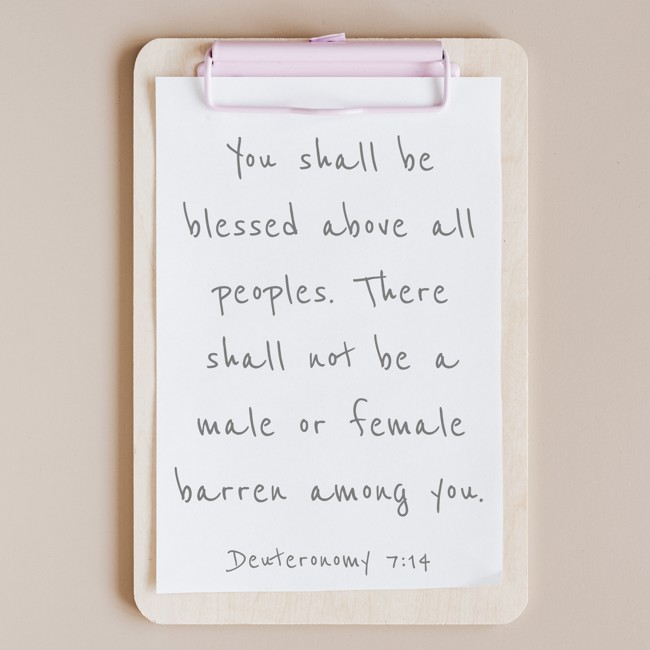 You shall be
blessed above all
peoples. There
shall not be a
male or female
barren among you.
Deuteronomy 7:14